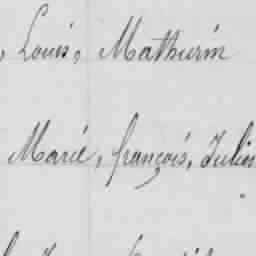 , Louis, Mathurin
Marie, françois, Julien